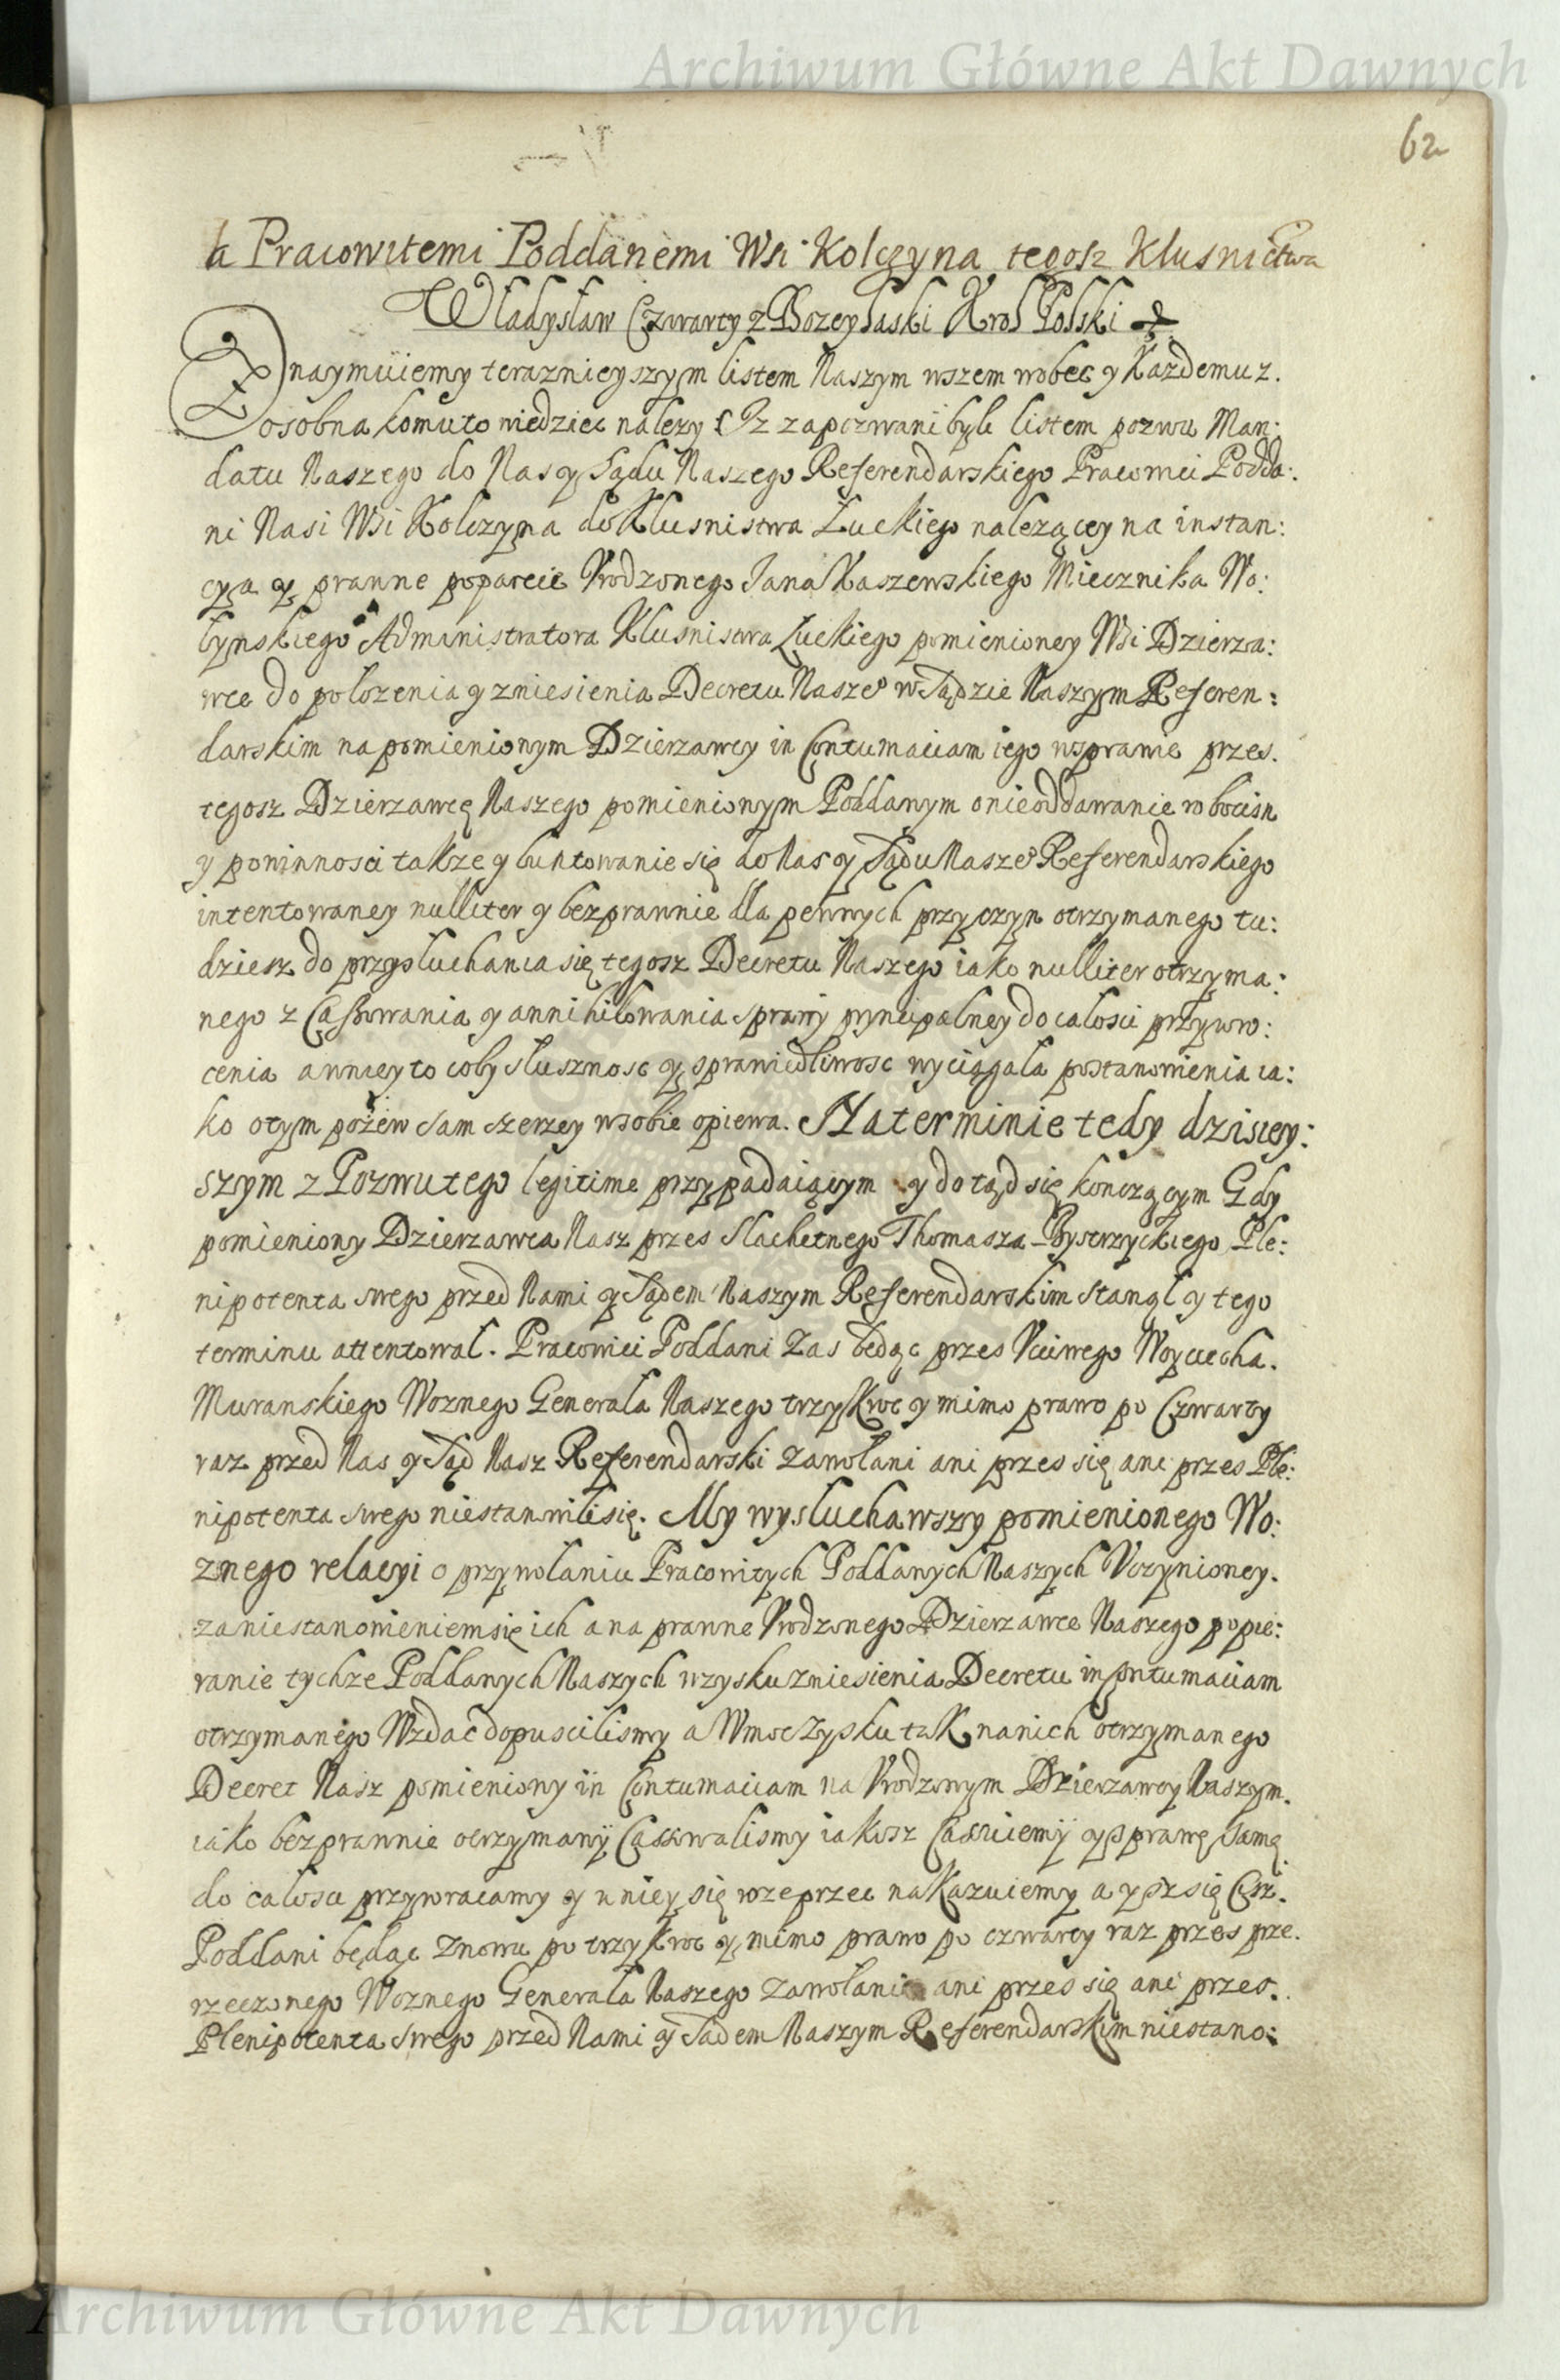 Archiwum Główne Akt Dawnych
62
a Pracowitemi Poddanemi Wsi Kolczyna tegosz Klusnictwa
Władysław Czwarty z Bozey Łaski Krol Polski &
Znaymuiemy teraznieyszym listem Naszym wszem wobec y Kazdemu z.
osobna komu to wiedziec nalezy Iz zapozwani byli listem pozwu Man:
datu Naszego do Nas y Sądu Naszego Referendarskiego Pracowici Podda:
ni Nasi Wsi Kolczyna do Klusnistwa Łuckiego nalezącey na instan:
cyą y prawne poparcie Vrodzonego Jana Kaszewskiego Miecznika Wo:
łynskiego Administratora Klusnistwa Łuckiego pomienioney Wsi Dzierza:
wce do polozenia y zniesienia Decretu Nasze° w Sądzie Naszym Referen:
darskim na pomienionym Dzierzawcy in Contumaciam iego wsprawie przes.
tegosz Dzierzawcę Naszego pomienionym Poddanym o nieoddawanie robocisn
y powinnosci takze y buntowanie się do Nas y Sądu Nasze° Referendarskiego
intentowaney nulliter y bezprawnie dla pewnych przyczyn otrzymanego tu:
dziesz do przysłuchania się tegosz Decretu Naszego iako nulliter otrzyma:
nego z Cassowania y annihilowania sprawy pryncipalney do calosci przywro:
cenia a wniey to coby słusznosc y sprawiedliwosc wyciągala postanowienia ia:
ko otym pozew sam szerzey wsobie opiewa. Na terminie tedy dzisiey:
szym z Pozwu tego legitime przypadaiącym y dotąd się konczącym Gdy
pomieniony Dzierzawca Nasz przes Slachetnego Thomasza Bystrzyckiego Ple:
nipotenta swego przed Nami y Sądem Naszym Referendarskim stanął y tego
terminu attentował. Pracowici Poddani Zas będąc przes Vcciwego Woyciecha.
Muranskiego Woznego Generała Naszego trzykroc y mimo prawo po Czwarty
raz przed Nas y Sąd Nasz Referendarski zawołani ani przes się ani przes Ple:
nipotenta swego niestanowili się. My wysłuchawszy pomienionego Wo:
znego relacyi o przywołaniu Pracowitych Poddanych Naszych Vczynioney.
za niestanowieniem się ich a na prawne Vrodzonego Dzierzawce Naszego popie:
ranie tychze Poddanych Naszych wzysku zniesienia Decretu in Contumaciam
otrzymanego Wzdac dopuscilismy a Wmoc Zysku tak na nich otrzymanego
Decret Nasz pomieniony in Contumaciam na Vrodzonym Dzierzawcy Naszym.
iako bezprawnie otrzymany Cassowalismy iakosz Cassuiemy y sprawę samę
do calosci przywracamy y w niey się rozeprzec nakazuiemy a
Poddani będąc znowu po trzykroc y mimo prawo po czwarty raz przes prze.
rzeczonego Woznego Generała Naszego zawołani ani przes się ani przes.
Plenipotenta swego przed Nami y Sądem Naszym Referendarskim niestano:
Archiwum Główne Akt Dawnych